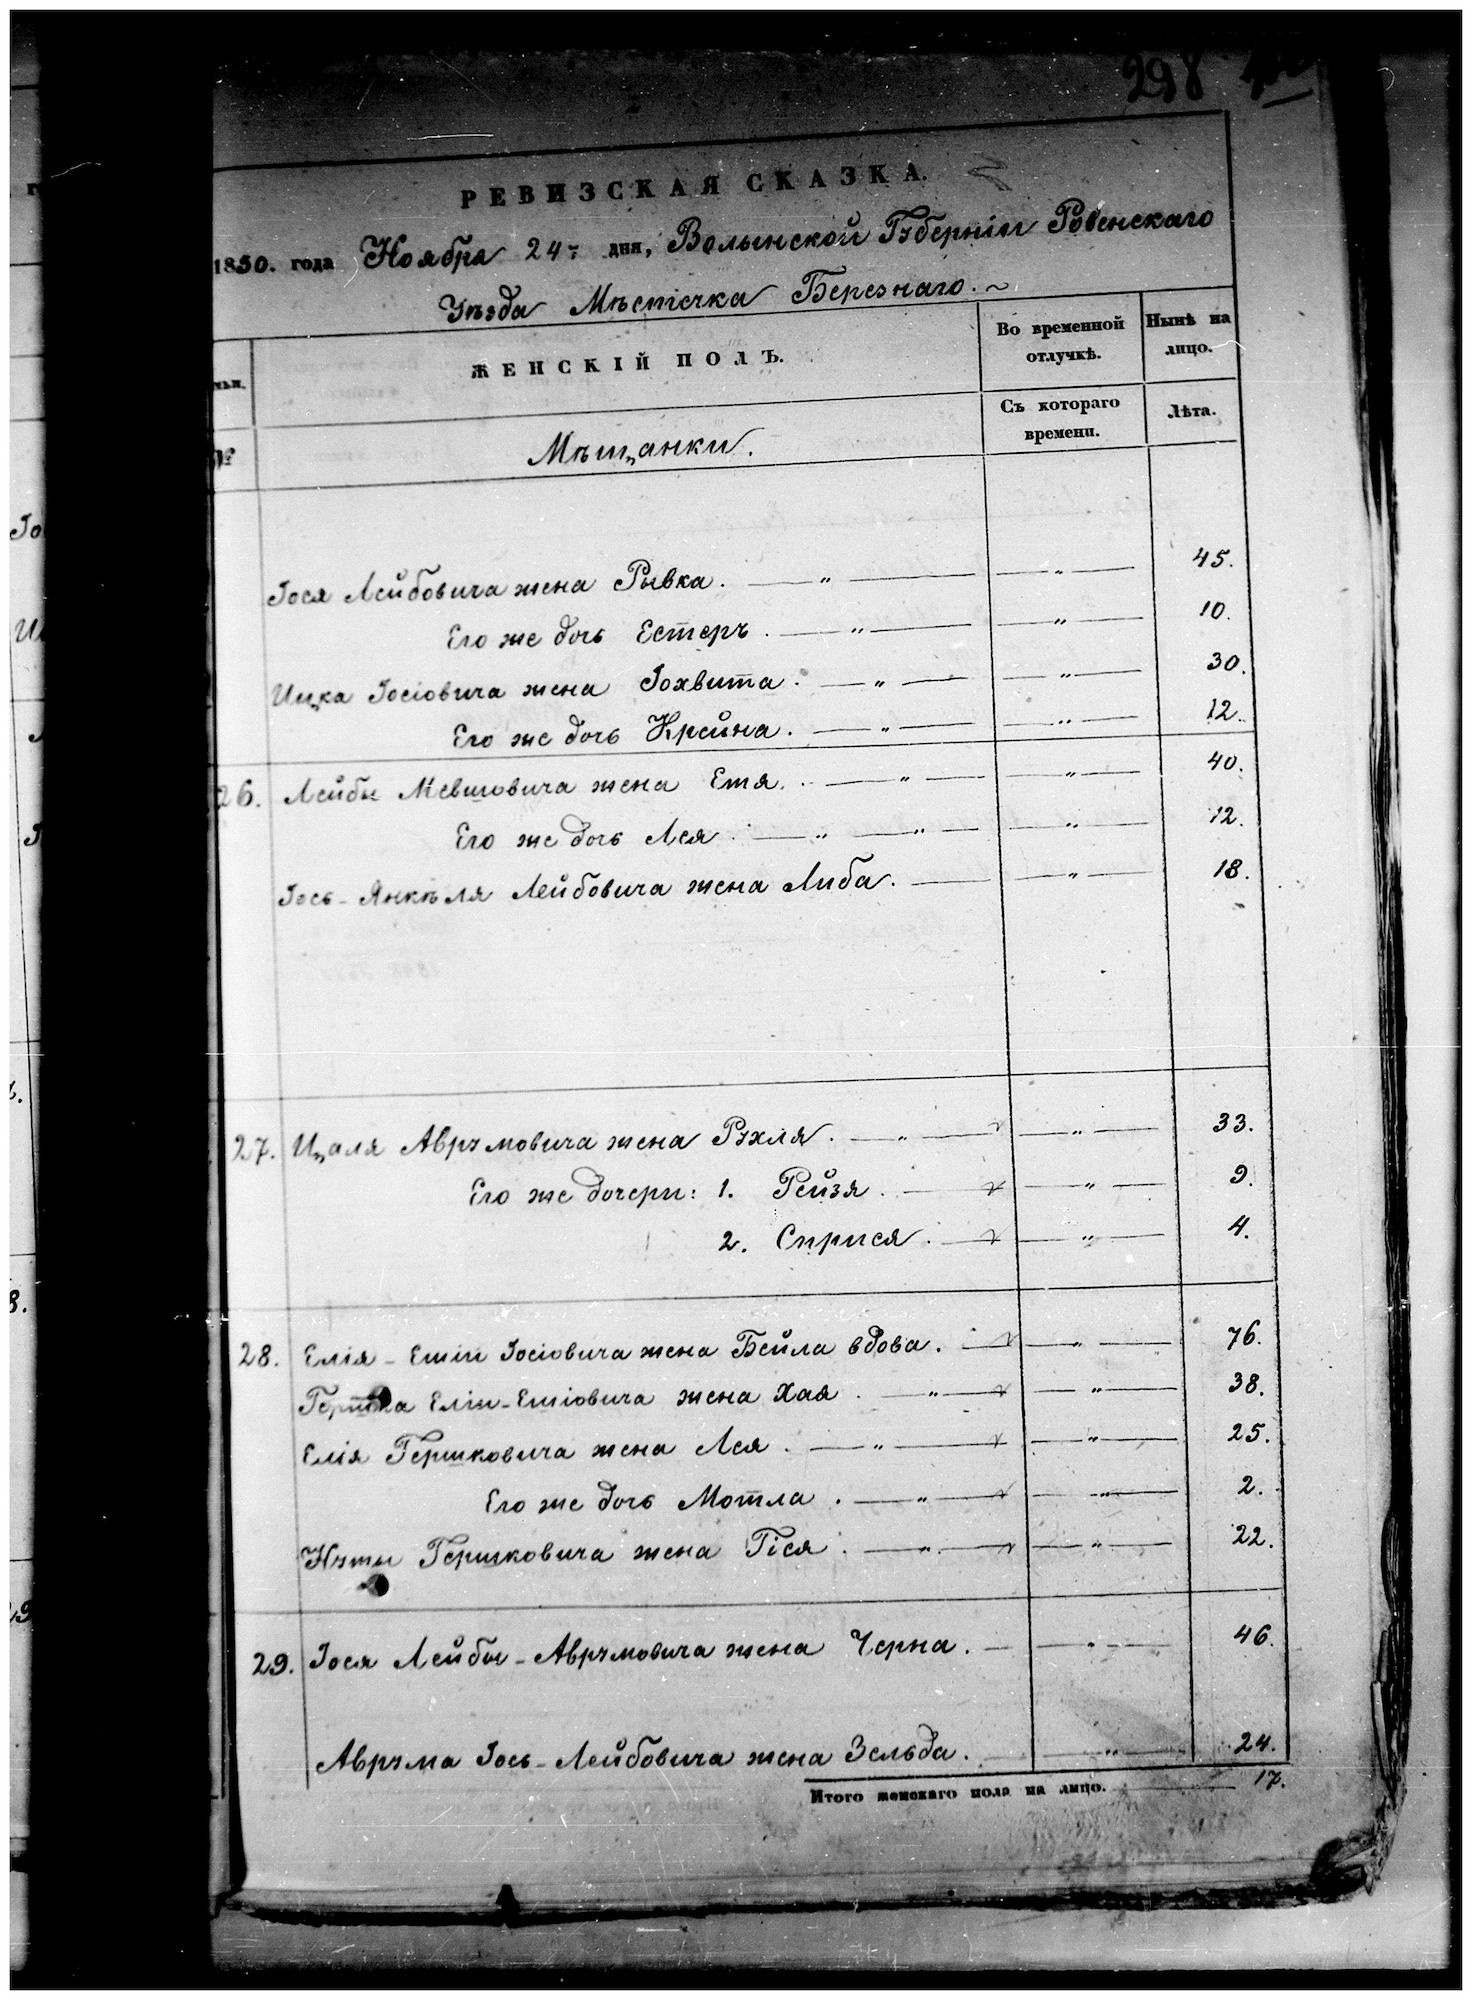 298
РЕВИЗСКАЯ СКАЗКА.
1850. года Ноября 24 дня, Волынской Губерніи Ровенскаго
Уѣзда Мѣстечка Березнаго.
ЖЕНСКІЙ ПОЛЪ.
Во временной отлучкѣ.
Нынѣ на лицо.
Съ котораго времени.
Лѣта.
№
Мѣщанки.
Іося Лейбовича жена Рывка. — „ — — „ — 45.
Его же дочь Естеръ. — „ — — „ — 10.
Ицка Іосіовича жена Іохвита. — „ — — „ — 30.
Его же дочь Крейна. — „ — — „ — 12.
26. Лейбы Мевшовича жена Етя. — „ — — „ — 40.
Его же дочь Лея. — „ — „ — — „ — 12.
Іось-Янкѣля Лейбовича жена Либа. — — „ — 18.
27. Цаля Аврумовича жена Рухля. — „ — — „ — 33.
Его же дочери: 1. Рейзя. — — „ — 9.
2. Сприся. — — „ — 4.
28. Елія-Ешіи Іосіовича жена Бейла вдова. — — „ — 76.
Гершка Еліи-Ешіовича жена Хая. — „ — — „ — 38.
Елія Гершковича жена Лея. — „ — — „ — 25.
Его же дочь Мотля. — „ — — „ — 2.
Нуты Гершковича жена Гіся. — „ — — „ — 22.
29. Іося Лейбы-Аврумовича жена Черна. — — „ — 46.
Аврума Іось-Лейбовича жена Зельда. — — „ — 24.
Итого женскаго пола на лицо. 17.